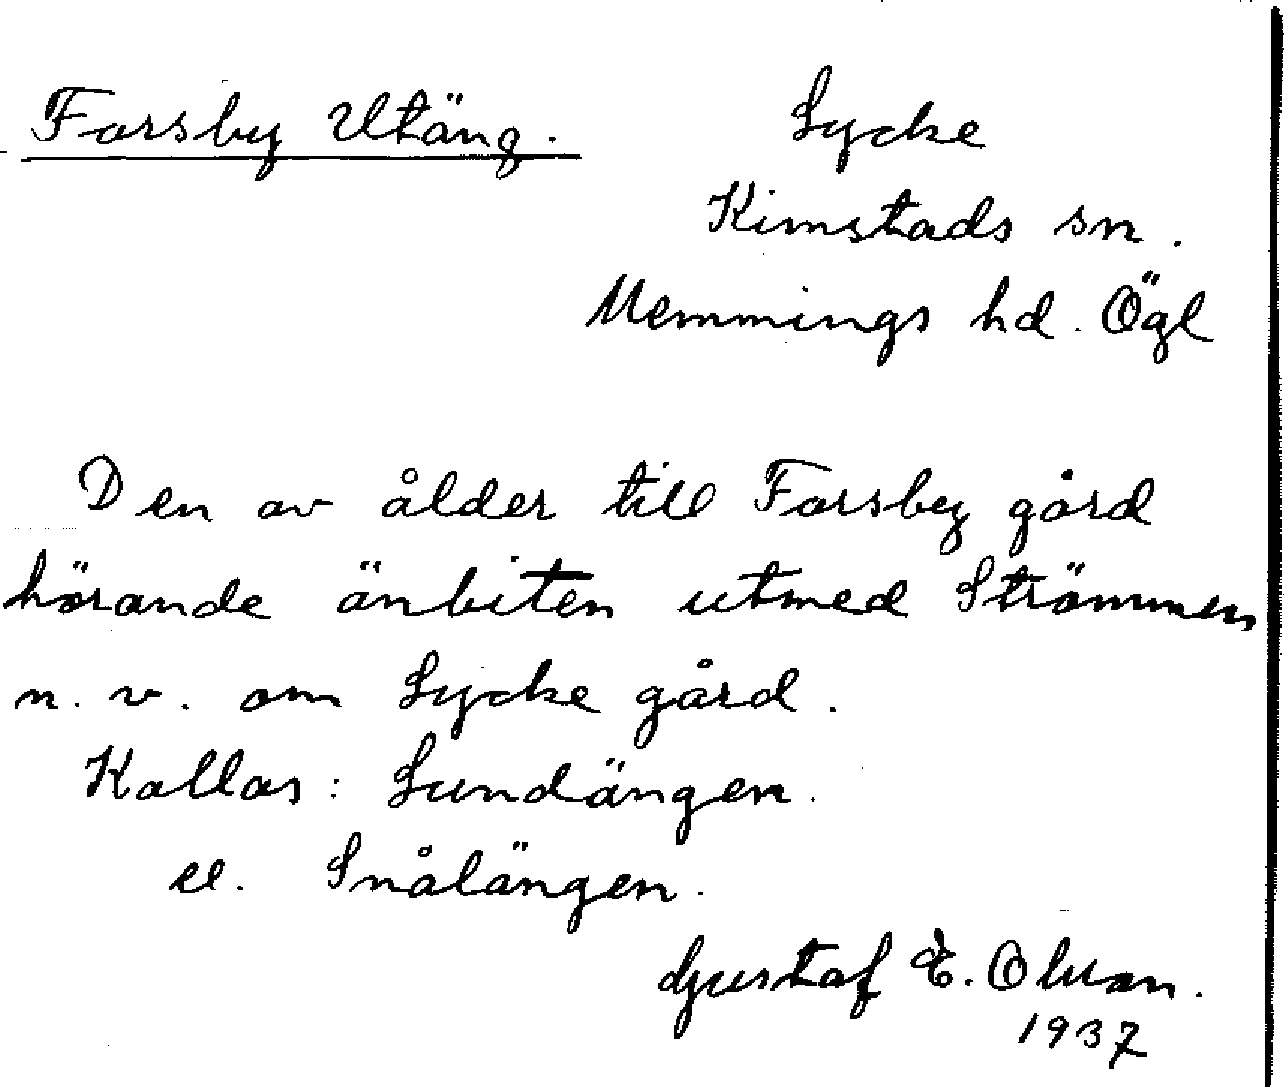 Forsby Utäng.
Lycke
Kimstads sn.
Memmings hd. Ögl
Den av ålder till Forsby gård
hörande änbiten utmed Strömmen
n. v. om Lycke gård.
Kallas: Lundängen.
el. Snålängen.
Gustaf E. Olsson.
1937